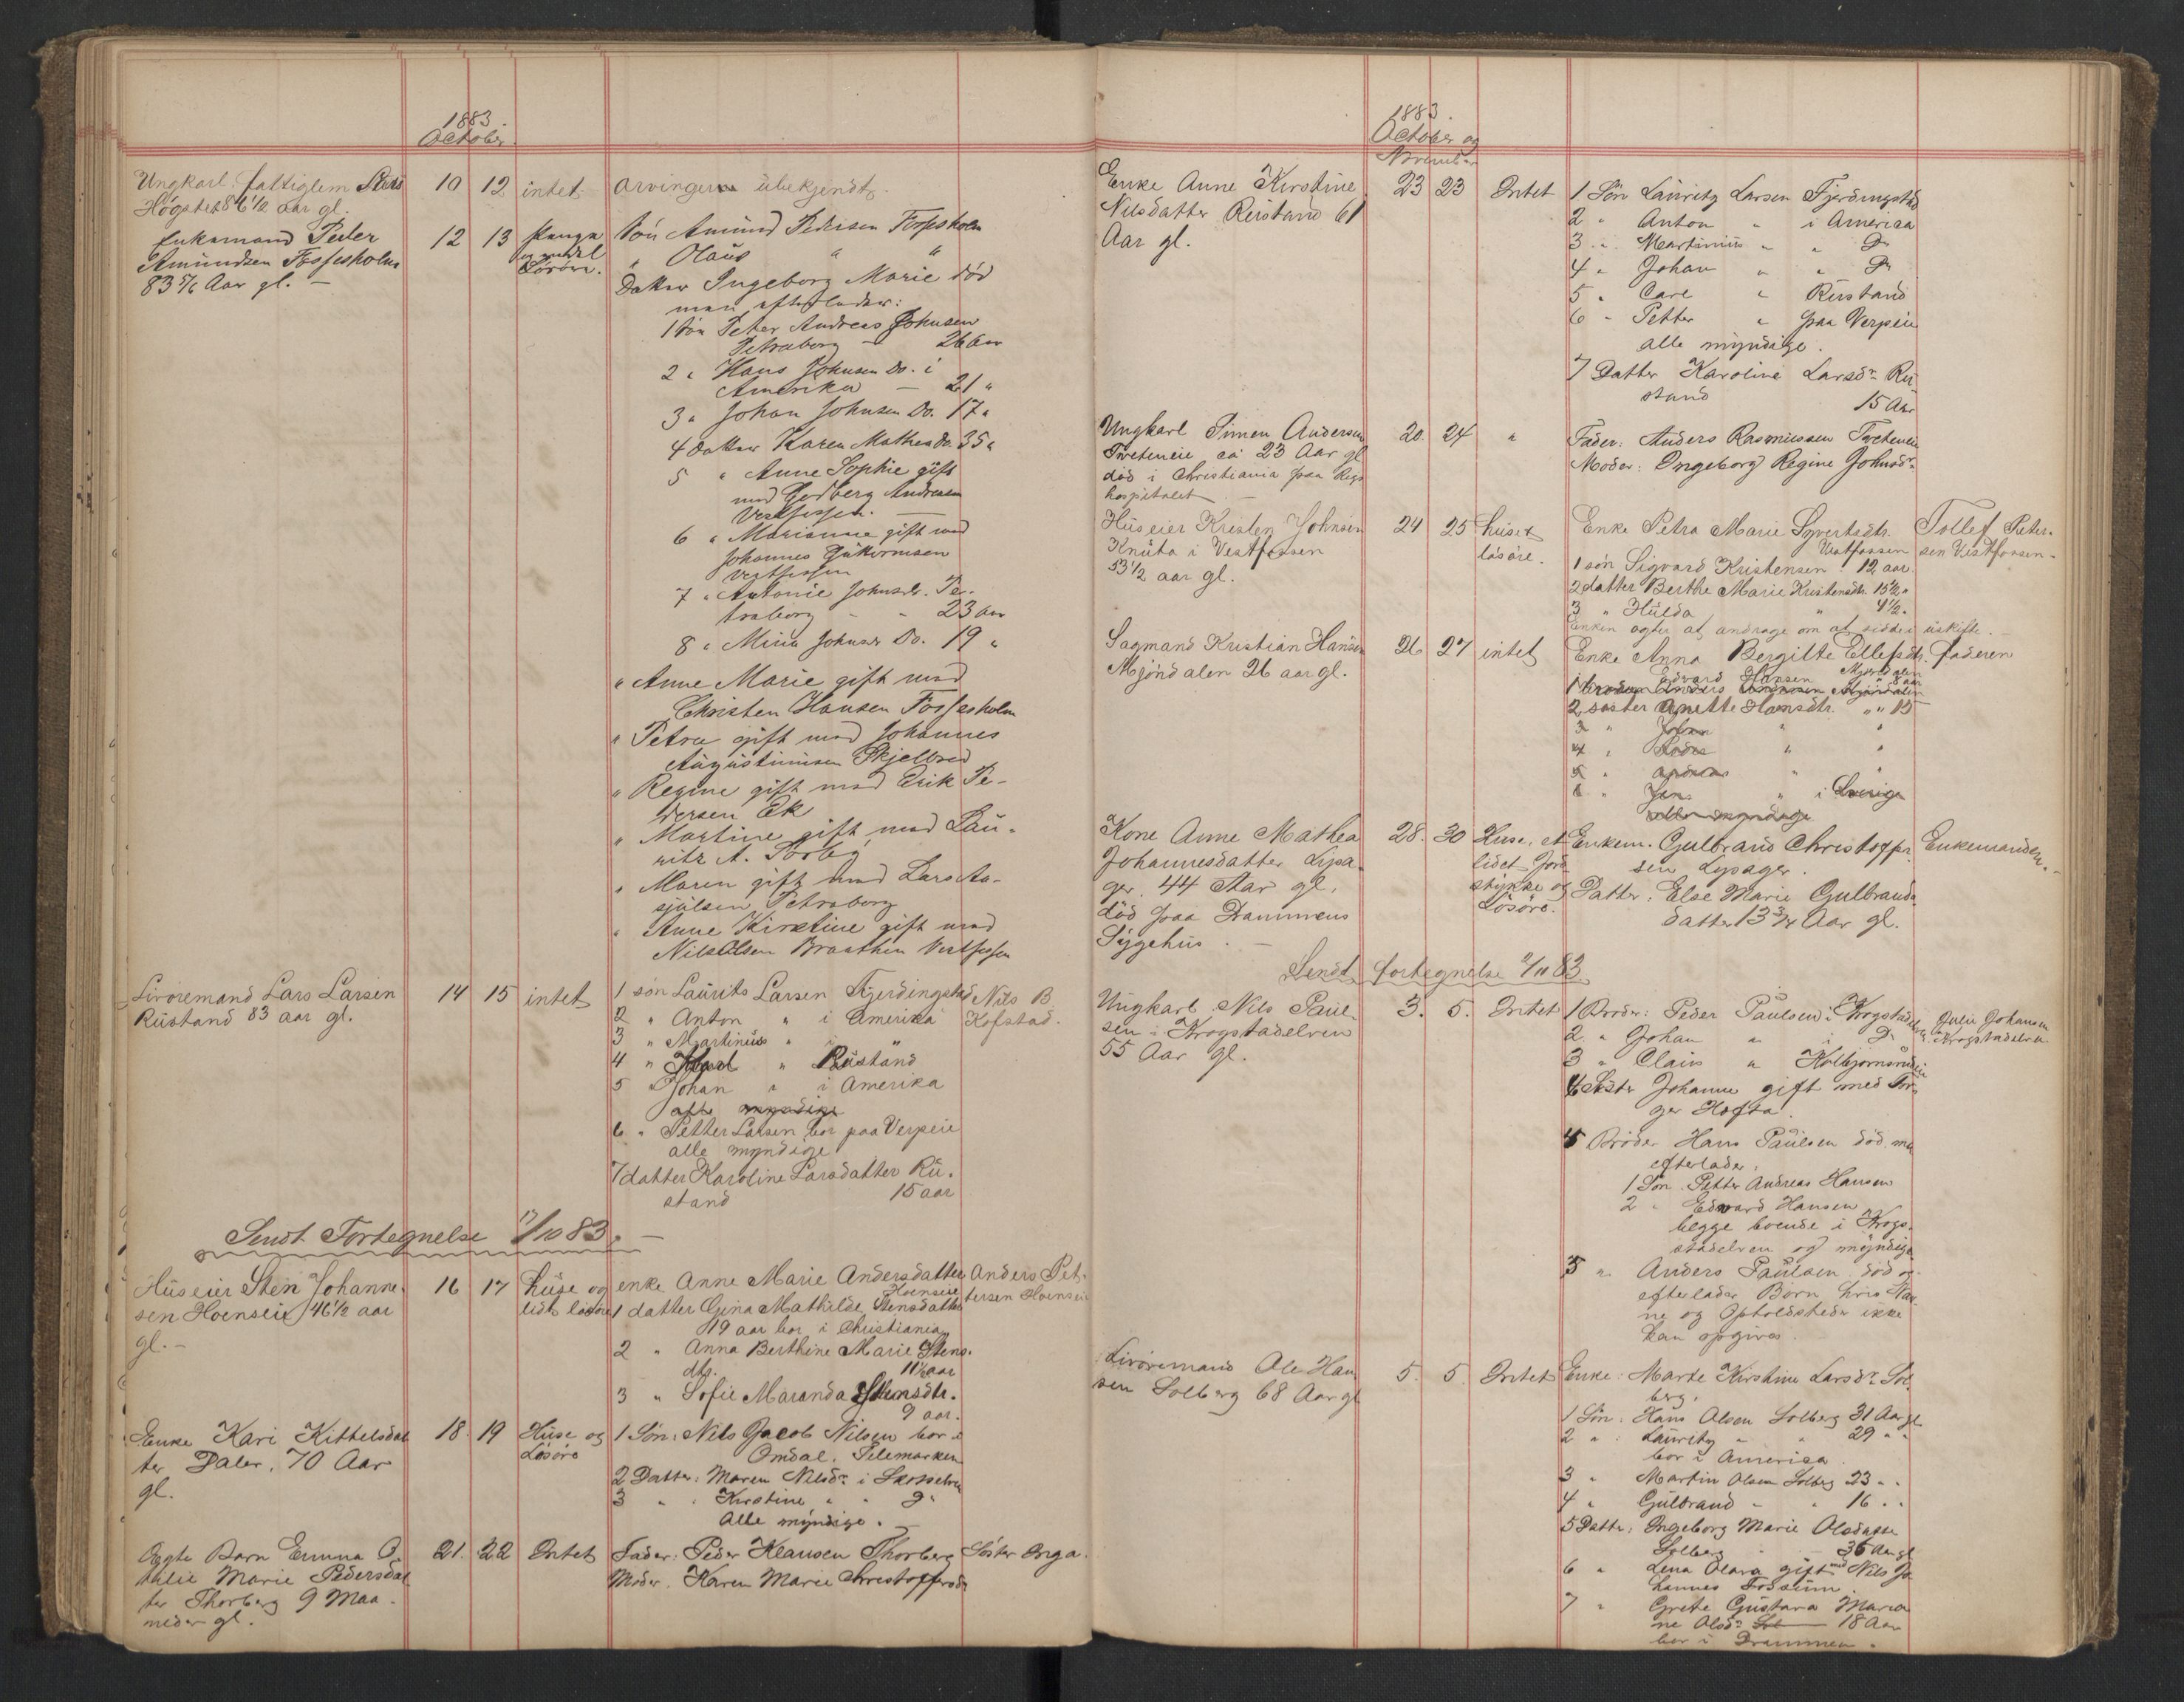 1883.
October.
Ungkarl. fattiglem
Högstet 86 1/2 aar gl.
10 12 intet
arvingerne ubekjendt.
Enkemand Peder
Amundsen Fossesholm
83 5/6 Aar gl. —
12 13 Penge
og
Lösöre.
Sön Amund Pedersen Fossesholm
" Olaus " "
Datter Ingeborg Marie död
men efterlader:
1 Sön Peter Andreas Johnsen
Petraborg — 26 aar
2 " Hans Johnsen Do. i
Amerika — 21 "
3 " Johan Johnsen Do. 17 "
4 Datter Karen Mathea Do. 35 "
5 " Anne Sophie gift
med Andresen
Vestfossen. —
6 " Marianne gift med
Johannes
Vestfossen
7 " Antonie Johnsdr. Pe-
traborg - - 23 aar
8 " Mina Johnsdr Do. 19 "
" Anne Marie gift med
Christen Hansen Fossesholm
" Petra gift med Johannes
Augustinusen Skjelbred
" Regine gift med Erik Pe-
dersen Ek
" Martine gift med Lau-
ritz A. Sörby
" Maren gift med Lars As-
sjulsen Petraborg
" Anne Kirstine gift med
Nils Olsen Braathen Vestfossen
Livöremand Lars Larsen
Rustand 83 aar gl.
14 15 intet
1 sön Laurits Larsen Fjerdingstad
Nils B.
Kofstad.
2 " Anton " i Amerika
3 " Martinius " "
4 " Karl " Rustand
5 " Johan " i Amerika
alle myndige
6 " Petter Larsen bor paa Verpeie
alle myndige
7 datter Karoline Larsdatter Ru-
stand 15 aar
Sendt Fortegnelse 17/10 83. —
Huseier Sten Johanne-
sen Hoenseie 46 1/2 aar
gl. -
16 17 huse og
lidt lösöre
enke Anne Marie Andersdatter
Hoenseie
Anders Pet-
tersen Hoenseie
1 datter Gina Mathilde Stensdatter
19 aar bor i Christiania
2 " Anna Berthine Marie Stens-
dtr. 11 1/2 aar
3 " Sofie Maranda Stensdtr.
9 aar.
Enke Kari Kittelsdat
ter Daler, 70 Aar
gl.
18. 19 Huse og
Lösöre
1 Sön: Nils Jacob Nilsen bor i
Omdal. Telemarken
2 Datter: Maren Nilsdr. i Skotselven
3 " " Kirstine " " D°
Alle myndige. -
Ægte Barn Emma O
tilie Marie Pedersdat
ter Thorberg 9 Maa-
neder gl.
21. 22 Intet
Fader: Peder Klausen Thorberg
Moder. Karen Marie Christoffersdr
Söster Inga.
1883.
October og
November
Enke Anne Kirstine
Nilsdatter Rustand 61
Aar gl.
23 23 Intet
1 Sön Lauritz Larsen Fjerdingstad
2 " Anton " i America
3 " Martinius " " D°
4 " Johan " " D°
5 " Carl " Rustand
6 " Petter " paa Verpeie
alle myndige.
7 Datter Karoline Larsdr. Ru
stand 15 Aar
Ungkarl Simen Andersen
Tveteneie ca 23 Aar gl
död i Christiania paa Rigs
hospitalet —
20. 24 "
Fader: Anders Rasmussen Tveteneie
Moder: Ingeborg Regine Johnsdr.
Huseier Kristen Johnsen
Knuta i Vestfossen
53 1/2 aar gl.
24 25 huset
lösöre.
Enke Petra Marie Syvertsdtr.
Vestfossen
Tollef Peter-
sen Vestfossen-
1 sön Sigvard Kristensen 12 aar.
2 datter Berthe Marie Kristensdtr. 15 1/2 "
3 " Hulda " 4 1/2 "
Enken agter at andrage om at sidde i uskifte.
Sagmand Kristian Hansen
Mjöndalen 26 aar gl.
26 27 intet
Enke Anna Bergitte Ellefsdtr.
Mjöndalen
faderen
1 broder Edvard Hansen " 8 aar
2 söster Agnette Hansdtr. " " 15
3 " Johan " "
4 " "
5 " Andreas " "
6 " Jens " i Sverige
alle myndige
Kone Anne Mathea
Johannesdatter Lysa
ger. 44 Aar gl.
död paa Drammens
Sygehus. —
28. 30 Huse, et
lidet Jord
stykke og
Lösöre.
Enkem. Gulbrand Christoffer
sen Lysager.
Enkemanden. -
Datter. Else Marie Gulbrands
datter 13 3/4 Aar gl.
Sendt fortegnelse 2/11 83
Ungkarl. Nils Paul-
sen i Krogstadelven
55 Aar gl.
3. 5. Intet
1 Broder: Peder Paulsen i Krogstadelv.
Julie Johansen
Krogstadelven
2. " Johan " i D°
3 " Claus " Kolbjörnsrudeie
4 Söster Johanne gift med Tor-
ger Hofta.
5 Broder Hans Paulsen död. men
efterlader.
1 Sön. Petter Andreas Hansen
2 " Edvard Hansen
begge boende i Krogs-
stadelven og myndige
5 " Anders Paulsen död og
efterlader Börn hvis Nav-
ne og Opholdssteder ikke
kan opgives.
Livöremand Ole Han
sen Solberg 68 Aar gl
5. 5. Intet
Enke: Marte Kirstine Larsdr. Sol-
berg.
1 Sön: Hans Olsen Solberg 31 Aar gl
2 " : Lauritz " " 29 " "
bor i America.
3 " Martin Olsen Solberg 23 " "
4 " Gulbrand " " 16. "
5 Datter: Ingeborg Marie Olsdatter
Solberg 36 Aar gl
6 " Lena Olava gift med Nils Jo-
hannes
7 " Grete Gustava Maria
ne Olsdr. 18 Aar
bor i Drammen.